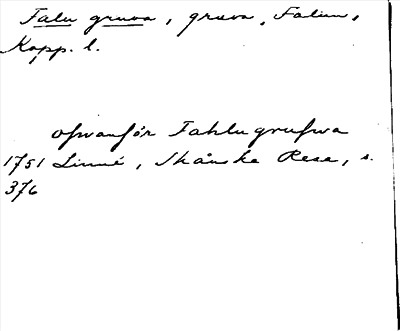 Falu gruva, gruva, Falun,
Kopp. l.
ofvanför Fahlu grufwa
1751 Linné, Skånska Resa, s.
376